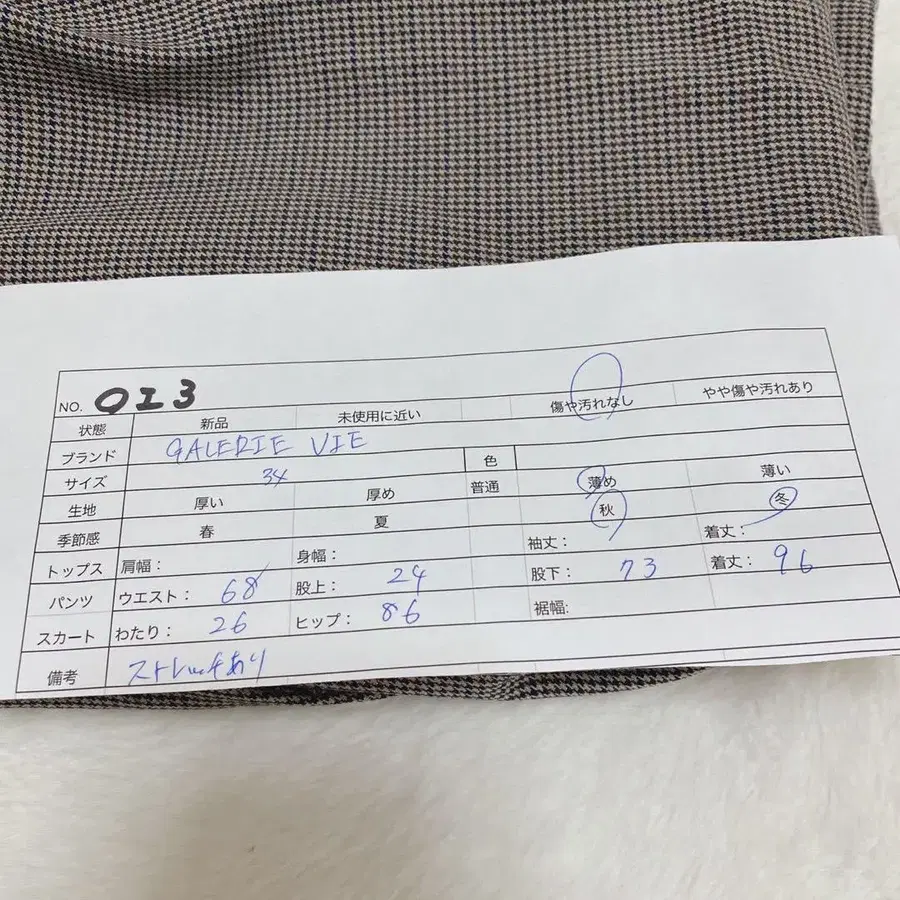 NO. 013
状態 新品 未使用に近い 傷や汚れなし やや傷や汚れあり
ブランド GALERIE VIE 色
サイズ 34
生地 厚い 厚め 普通 薄め 薄い
季節感 春 夏 秋 冬
トップス 肩幅： 身幅： 袖丈： 着丈：
パンツ ウエスト： 68 股上： 24 股下： 73 着丈： 96
スカート わたり： 26 ヒップ： 86 裾幅:
備考 ストレッチあり